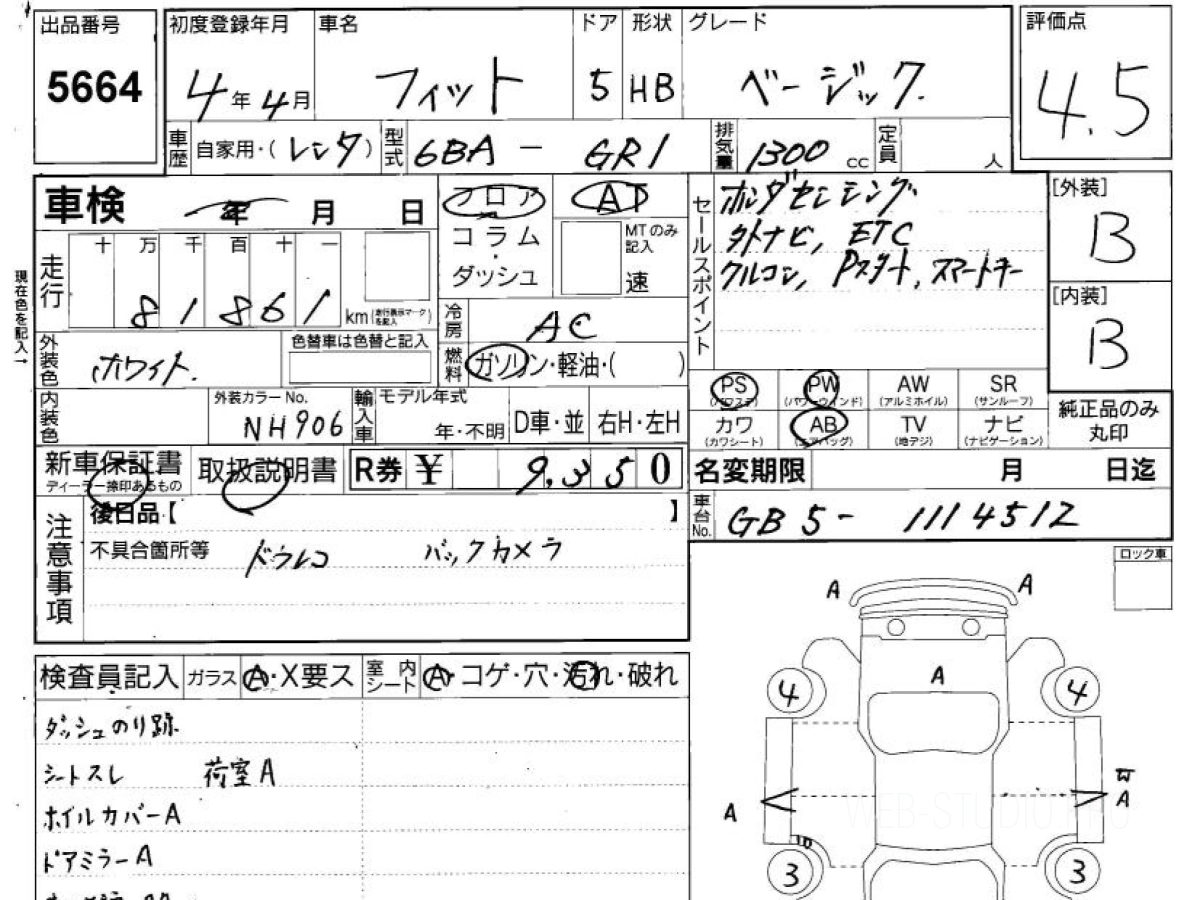 出品番号 初度登録年月 車名 ドア 形状 グレード 評価点
5664 4年4月 フィット 5 HB ベーシック 4.5
車歴 自家用・(レンタ) 型式 6BA - GR1 排気量 1300 cc 定員 人
車検 年 月 日 フロア AT
コラム・ダッシュ MTのみ記入 速
セールスポイント
ホンダセンシング
外ナビ, ETC
クルコン, Pスタート, スマートキー
[外装]
B
[内装]
B
現在色を記入→
走行 十 万 千 百 十 一
8 1 8 6 1 km (走行表示マークを記入)
冷房 AC
外装色 ホワイト. 色替車は色替と記入 燃料 ガソリン・軽油・( )
内装色 外装カラーNo. NH906 輸入車 モデル年式 年・不明 D車・並 右H・左H
PS (パワステ) PW (パワーウインド) AW (アルミホイル) SR (サンルーフ)
カワ (カワシート) AB (エアバッグ) TV (地デジ) ナビ (ナビゲーション)
純正品のみ丸印
新車保証書 ディーラー捺印あるもの 取扱説明書 R券 ¥ 9,350 名変期限 月 日迄
車台No. GB5-1114512
注意事項
後日品【 】
不具合箇所等 ドラレコ バックカメラ
ロック車
検査員記入 ガラス A・X要ス 室内シート A・コゲ・穴・汚れ・破れ
ダッシュのり跡
シートスレ 荷室A
ホイルカバーA
ドアミラーA
A A
A
4 4
A A
3 3
WEB-STUDIO.PRO